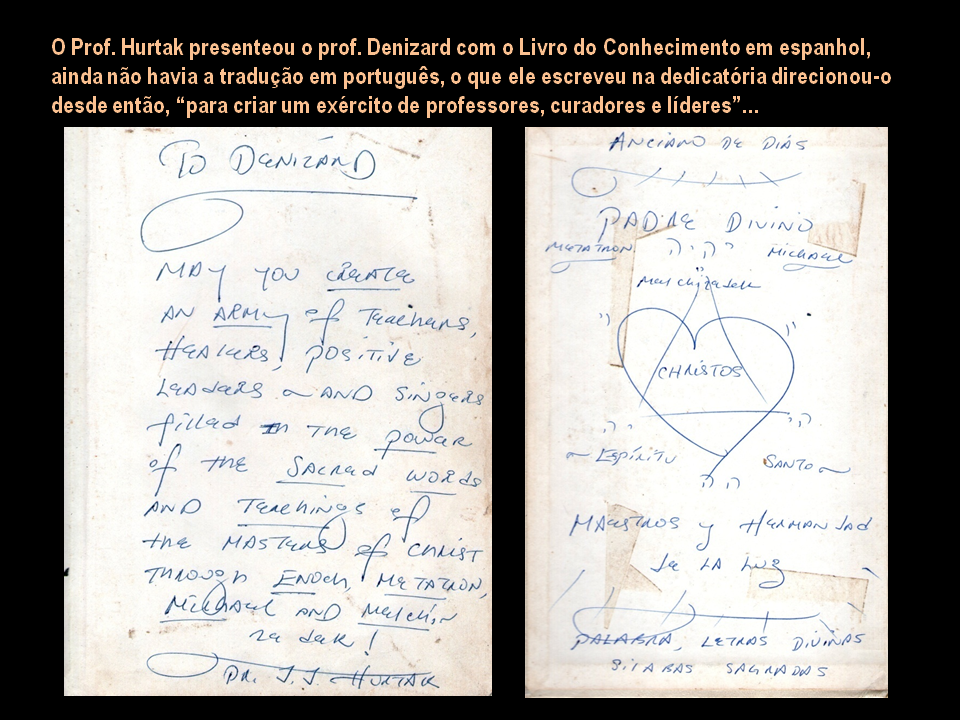 O Prof. Hurtak presenteou o prof. Denizard com o Livro do Conhecimento em espanhol,
ainda não havia a tradução em português, o que ele escreveu na dedicatória direcionou-o
desde então, “para criar um exército de professores, curadores e líderes”...
TO DENIZARD
MAY YOU CREATE
AN ARMY of TEACHERS,
HEALERS, POSITIVE
LEADERS AND SINGERS
filled in THE POWER
of THE SACRED WORDS
AND TEACHINGS of
the MASTERS of CHRIST
THROUGH ENOCH, METATRON,
MICHAEL AND MELCHIZ
ZADEK!
DR. J.J. HURTAK
ANCIANO DE DIAS
PADRE DIVINO
METATRON יהוה MICHAEL
Melchizadek
CHRISTOS
ESPÍRITU SANTO
MAESTROS y HERMANDAD
de LA LUZ
PALABRA, LETRAS DIVINAS
SILABAS SAGRADAS